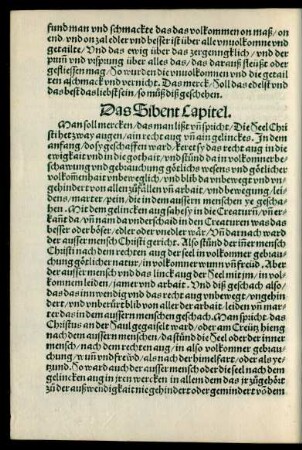 fund man vnd schmackte das das volkommen on maß/ on
end vnd on zal edler vnd besser ist über alle vnuolkomne vnd
getailte/ Vnd das ewig über das zergenngklich/ vnd der
prūn̄ vnd vrsprung über alles das/ das darauß fleüßt oder
gefliessen mag/ So wurden die vnuolkomen vnd die getail
ten aschmack vnd vernicht. Das merck/ Soll das edlest vnd
das best das liebst sein/ so můß diß geschehen.
Das Sibent Capitel.
Man soll mercken/ das man lißt vn̄ spricht/ Die Seel Chri
sti het zway augen/ ain recht aug vn̄ ain gelinckes. In dem
anfang/ do sy geschaffen ward/ keret sy das recht aug in die
ewigkait vnd in die gothait/ vnd stůnd da in volkomner be
schawung vnd gebrauchung götlichs wesens/ vnd götlicher
volkōmenhait vnbeweglich/ vnd blib da vnbewegt vnd vn
gehindert von allen zůfällen vn̄ arbait/ vnd bewegung/ lei
dens/ marter/ pein/ die in dem aussern menschen ye gescha
hen. Mit dem gelincken aug sahe sy in die Creaturn/ vn̄ er
kant da/ vn̄ nam da vnderschaid in den Creaturen was da
besser oder böser/ edler oder vnedler wär/ Vn̄ darnach ward
der ausser mensch Christi gericht. Also stůnd der in̄er mensch
Christi nach dem rechten aug der seel in volkomner gebrau
chung götlicher natur/ in volkomner wunn vn̄ freud. Aber
der ausser mensch vnd das linck aug der Seel mit jm/ in vol
kom̄nem leiden/ jamer vnd arbait. Vnd diß geschach also/
das das inwendig vnd das recht aug vnbewegt/ vngehin
dert/ vnd vnberürt blib von aller der arbait leiden vn̄ mar
ter das in dem aussern menschen geschach. Man spricht das
Christus an der Saul gegaiselt ward/ oder am Creütz hieng
nach dem aussern menschen/ da stůnd die Seel oder der inner
mensch/ nach dem rechten aug/ in also volkomner gebrau
chung/ wun̄ vnd freüd/ als nach der himelfart/ oder als ye
tzund. So ward auch der ausser mensch oder die seel nach dem
gelincken aug in jren wercken in allem dem das jr zůgehört
zů der außwendigkait nie gehindert oder gemindert vō dem